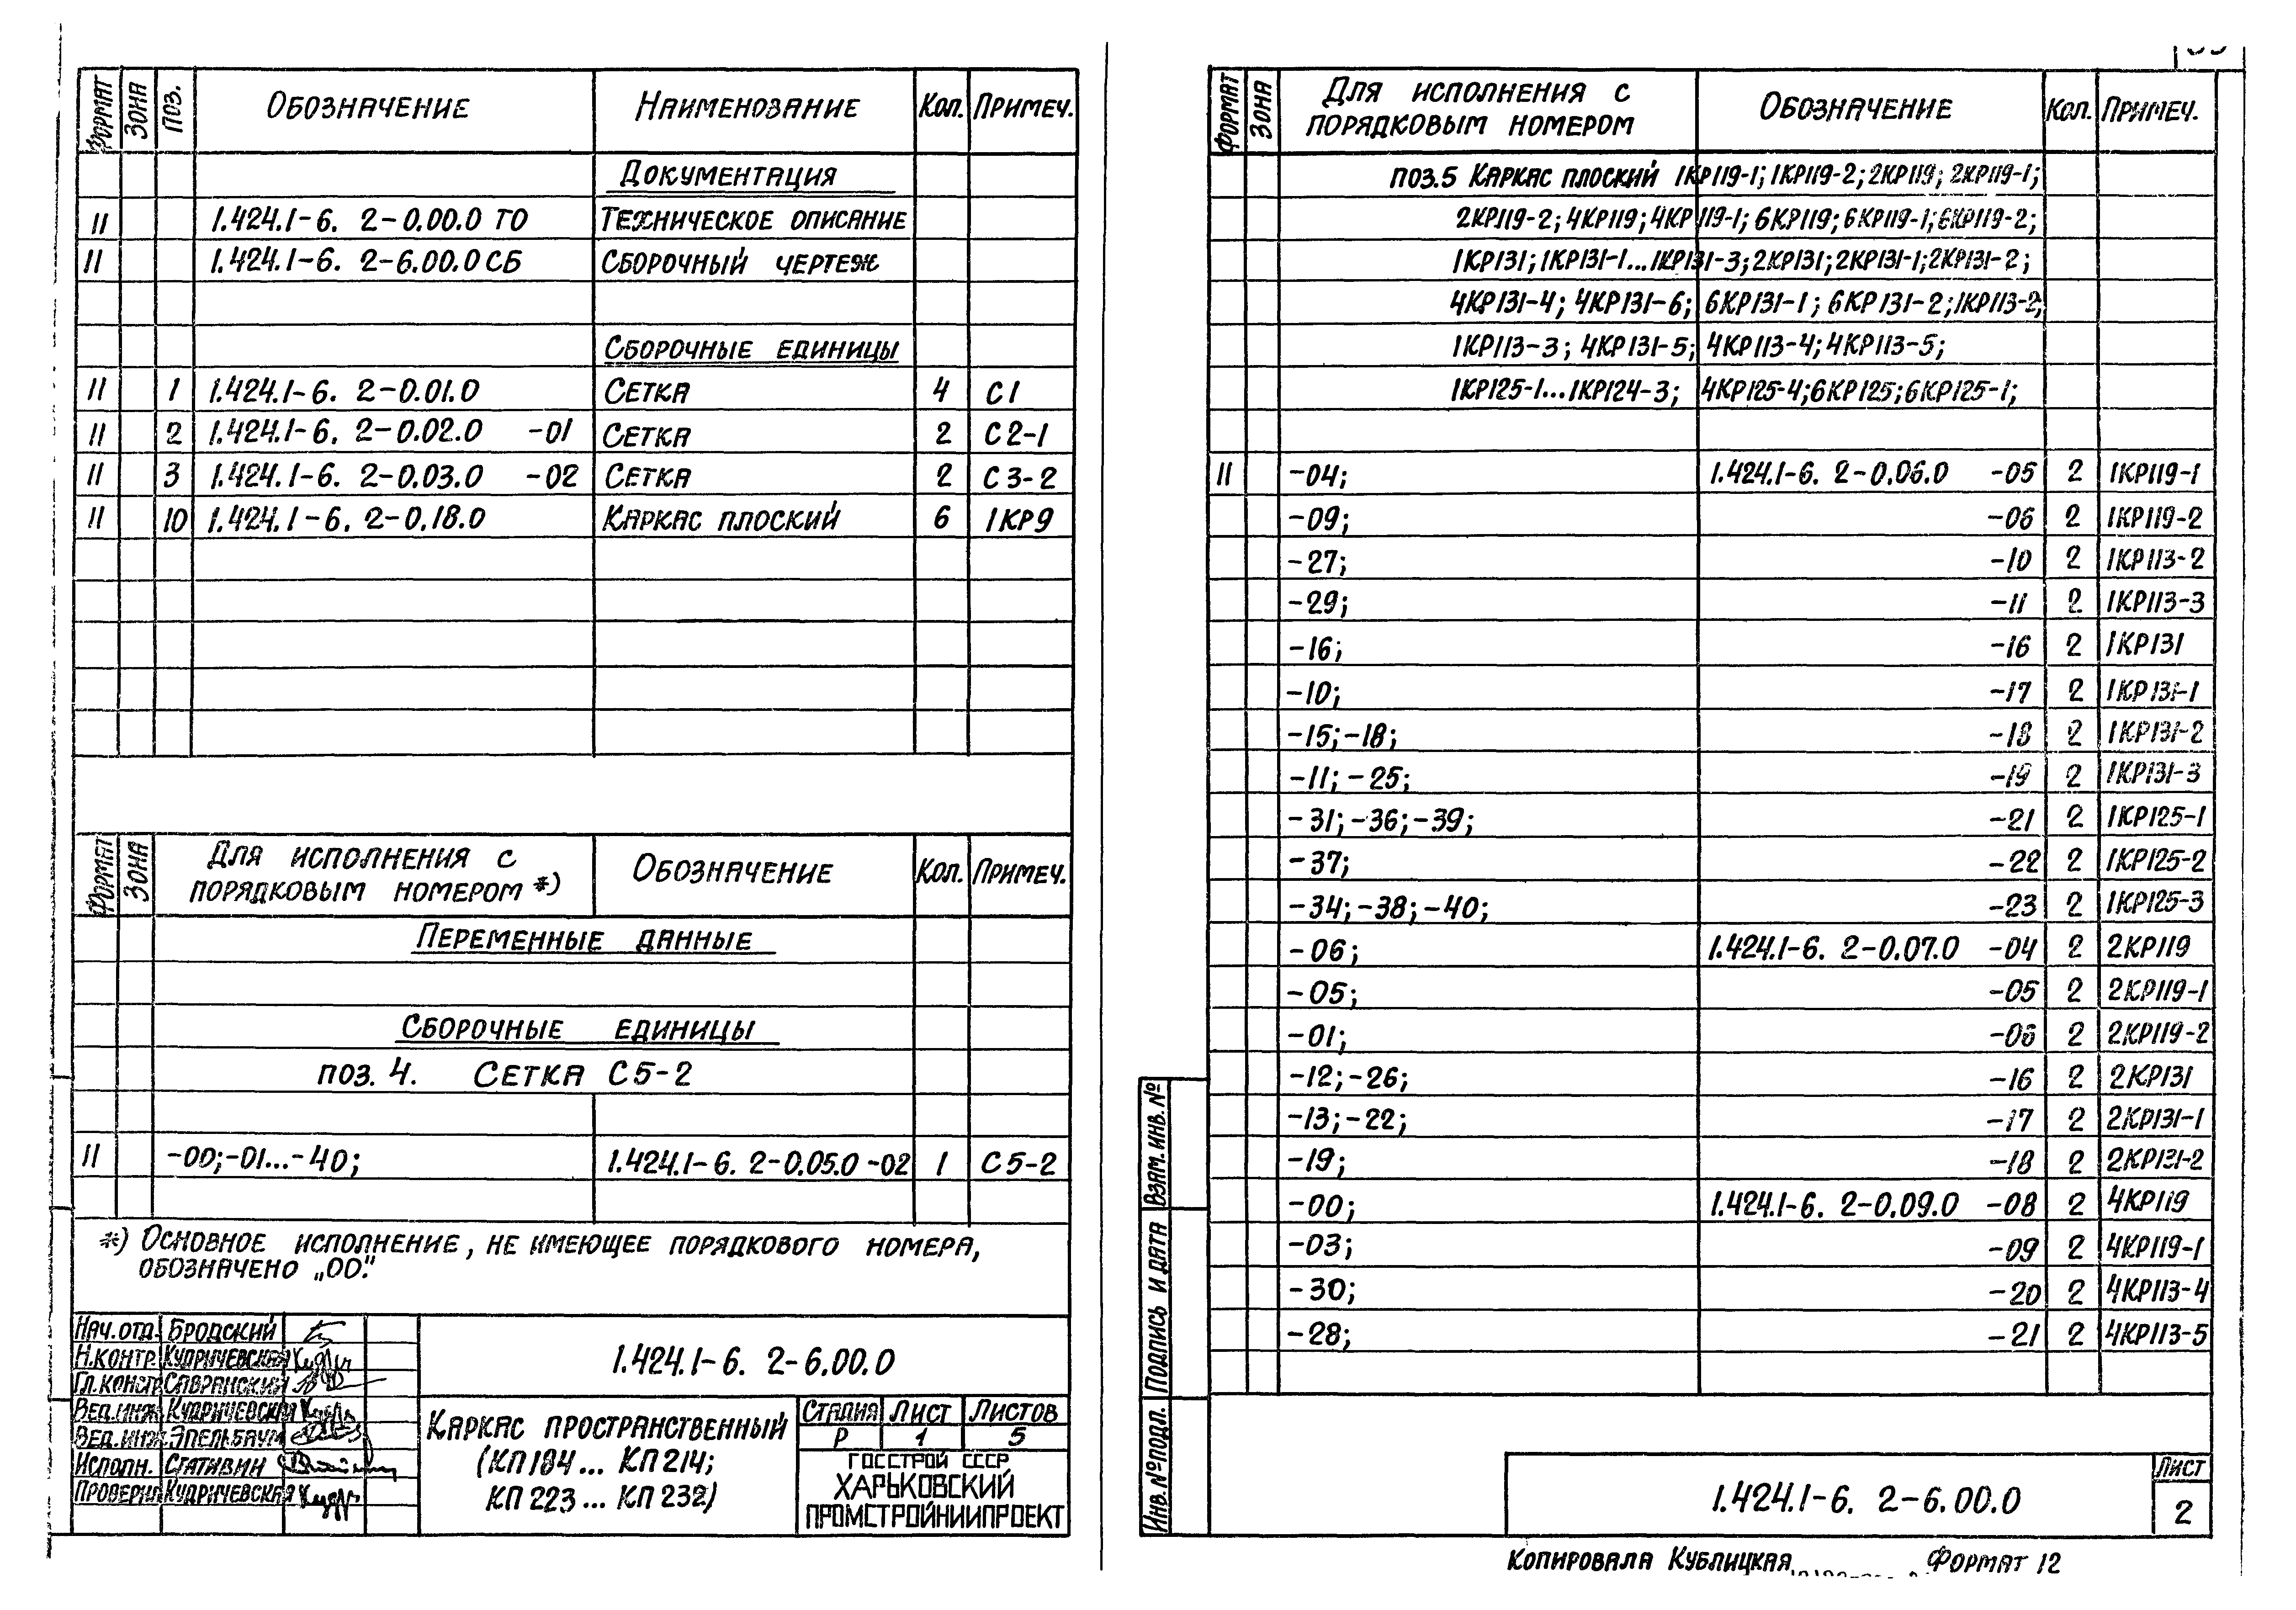 ФОРМАТ ЗОНА ПОЗ. ОБОЗНАЧЕНИЕ НАИМЕНОВАНИЕ КОЛ. ПРИМЕЧ.
ДОКУМЕНТАЦИЯ
11 1.424.1-6. 2-0.00.0 ТО ТЕХНИЧЕСКОЕ ОПИСАНИЕ
11 1.424.1-6. 2-6.00.0 СБ СБОРОЧНЫЙ ЧЕРТЕЖ
СБОРОЧНЫЕ ЕДИНИЦЫ
11 1 1.424.1-6. 2-0.01.0 СЕТКА 4 С1
11 2 1.424.1-6. 2-0.02.0 -01 СЕТКА 2 С2-1
11 3 1.424.1-6. 2-0.03.0 -02 СЕТКА 2 С3-2
11 10 1.424.1-6. 2-0.18.0 КАРКАС ПЛОСКИЙ 6 1КР9
ФОРМАТ ЗОНА ДЛЯ ИСПОЛНЕНИЯ С ПОРЯДКОВЫМ НОМЕРОМ *) ОБОЗНАЧЕНИЕ КОЛ. ПРИМЕЧ.
ПЕРЕМЕННЫЕ ДАННЫЕ
СБОРОЧНЫЕ ЕДИНИЦЫ
ПОЗ. 4. СЕТКА С5-2
11 -00;-01...-40; 1.424.1-6. 2-0.05.0 -02 1 С5-2
*) ОСНОВНОЕ ИСПОЛНЕНИЕ, НЕ ИМЕЮЩЕЕ ПОРЯДКОВОГО НОМЕРА,
ОБОЗНАЧЕНО „00".
НАЧ.ОТД. БРОДСКИЙ
Н.КОНТР. КУДРИЧЕВСКАЯ
ГЛ.КОНСТР САВРАНСКИЙ
ВЕД.ИНЖ КУДРИЧЕВСКАЯ
ВЕД.ИНЖ ЭПЕЛЬБАУМ
ИСПОЛН. СТАТИВИН
ПРОВЕРИЛ КУДРИЧЕВСКАЯ
1.424.1-6. 2-6.00.0
КАРКАС ПРОСТРАНСТВЕННЫЙ
(КП184... КП214;
КП223... КП232)
СТАДИЯ ЛИСТ ЛИСТОВ
Р 1 5
ГОССТРОЙ СССР
ХАРЬКОВСКИЙ
ПРОМСТРОЙНИИПРОЕКТ
ФОРМАТ ЗОНА ДЛЯ ИСПОЛНЕНИЯ С ПОРЯДКОВЫМ НОМЕРОМ ОБОЗНАЧЕНИЕ КОЛ. ПРИМЕЧ.
ПОЗ.5 КАРКАС ПЛОСКИЙ 1КР119-1; 1КР119-2; 2КР119; 2КР119-1;
2КР119-2; 4КР119; 4КР119-1; 6КР119; 6КР119-1; 6КР119-2;
1КР131; 1КР131-1...1КР131-3; 2КР131; 2КР131-1; 2КР131-2;
4КР131-4; 4КР131-6; 6КР131-1; 6КР131-2; 1КР113-2;
1КР113-3; 4КР131-5; 4КР113-4; 4КР113-5;
1КР125-1...1КР124-3; 4КР125-4; 6КР125; 6КР125-1;
11 -04; 1.424.1-6. 2-0.06.0 -05 2 1КР119-1
-09; -06 2 1КР119-2
-27; -10 2 1КР113-2
-29; -11 2 1КР113-3
-16; -16 2 1КР131
-10; -17 2 1КР131-1
-15;-18; -18 2 1КР131-2
-11; -25; -19 2 1КР131-3
-31;-36;-39; -21 2 1КР125-1
-37; -22 2 1КР125-2
-34;-38;-40; -23 2 1КР125-3
-06; 1.424.1-6. 2-0.07.0 -04 2 2КР119
-05; -05 2 2КР119-1
-01; -06 2 2КР119-2
-12;-26; -16 2 2КР131
-13;-22; -17 2 2КР131-1
-19; -18 2 2КР131-2
-00; 1.424.1-6. 2-0.09.0 -08 2 4КР119
-03; -09 2 4КР119-1
-30; -20 2 4КР113-4
-28; -21 2 4КР113-5
ИНВ.№ПОДЛ. ПОДПИСЬ И ДАТА ВЗАМ.ИНВ.№
1.424.1-6. 2-6.00.0
ЛИСТ
2
КОПИРОВАЛА КУБЛИЦКАЯ ФОРМАТ 12